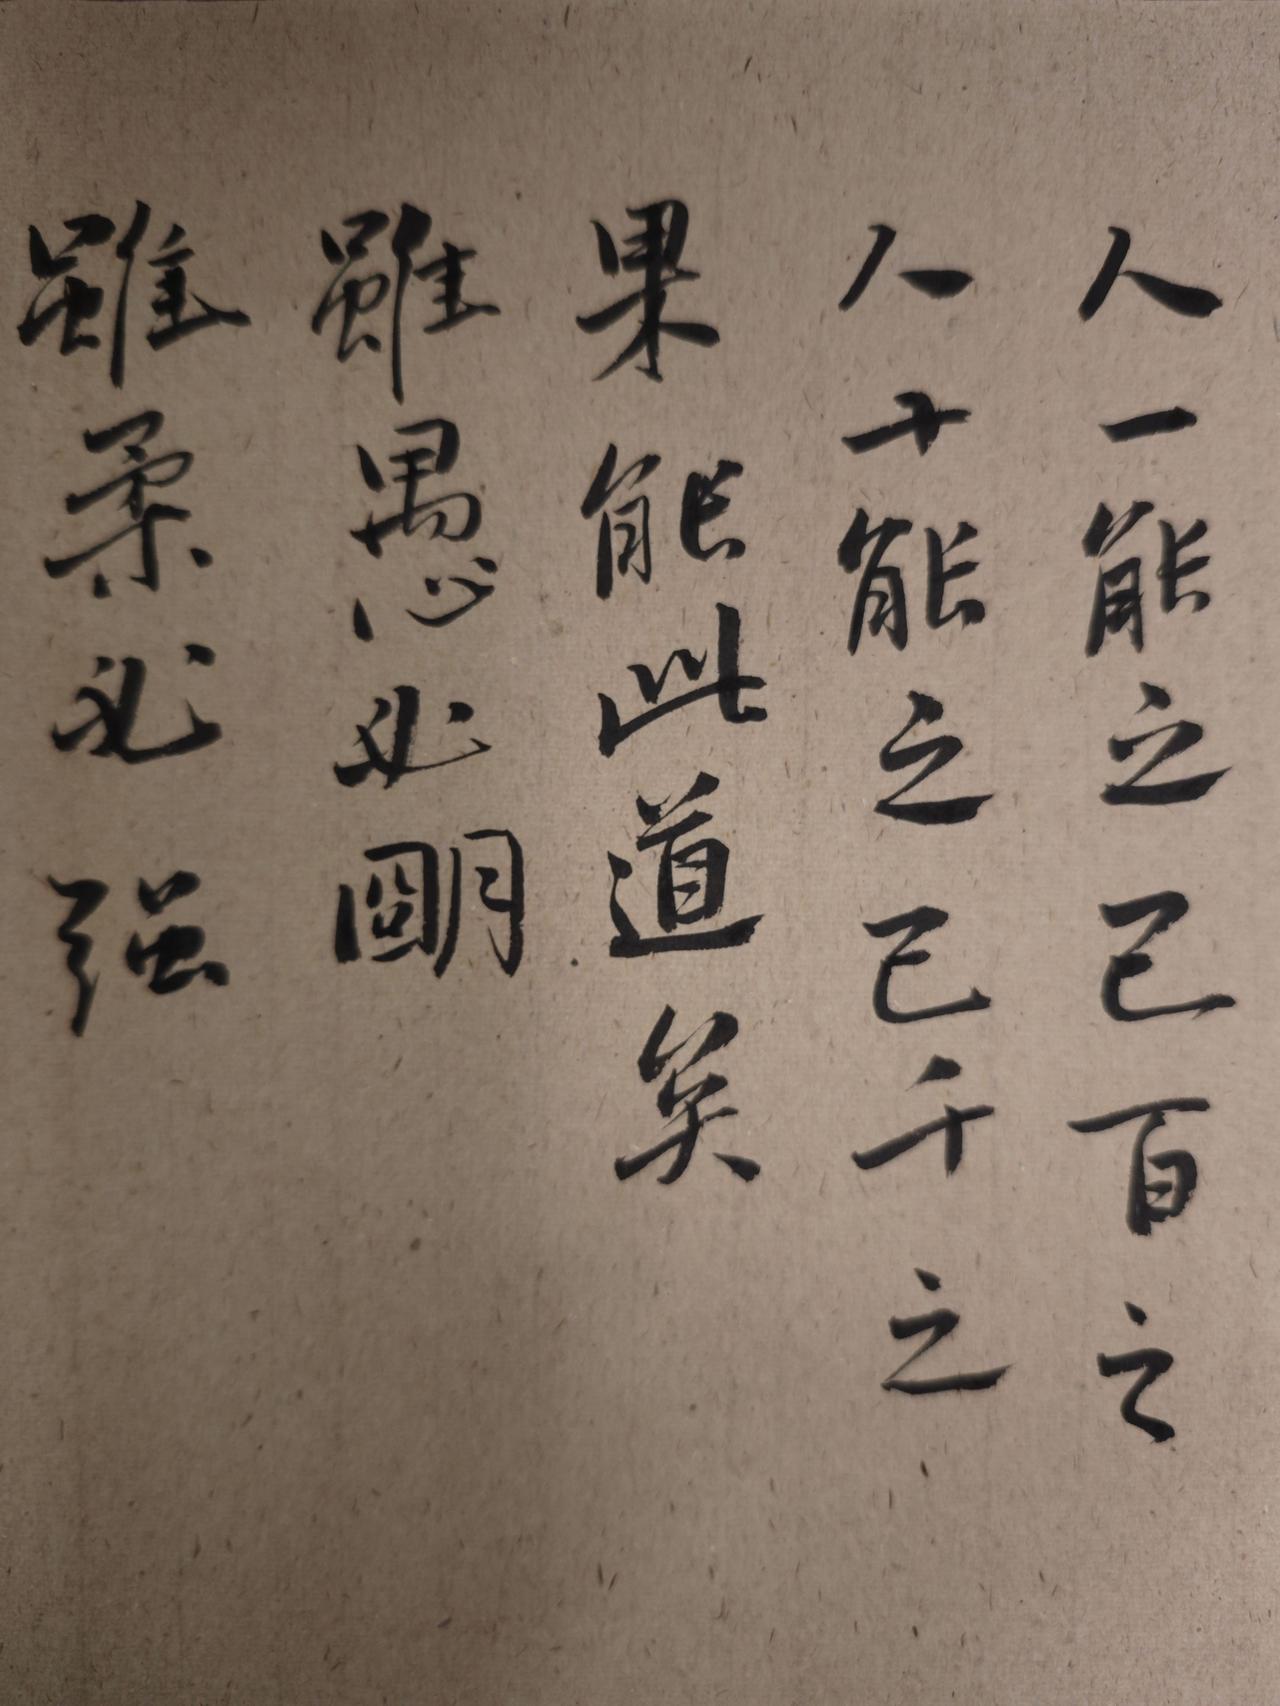 人一能之己百之
人十能之己千之
果能此道矣
雖愚必朙
雖柔必强